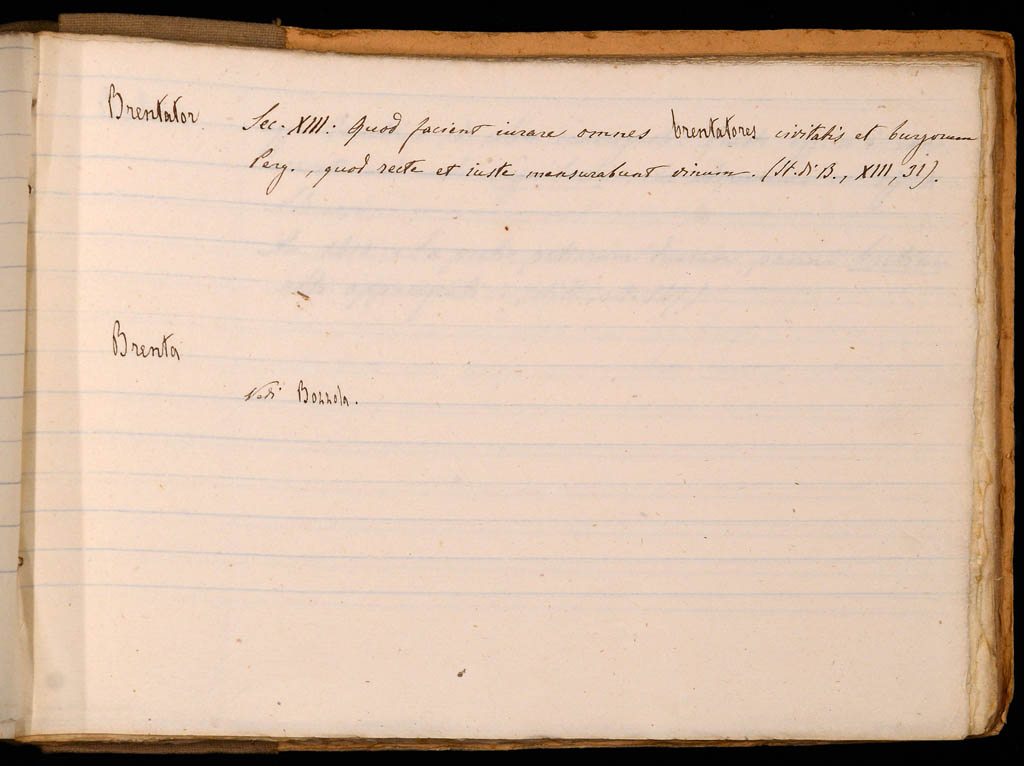 Brentator
Sec. XIII: Quod facient iurare omnes brentatores civitatis et burgorum
Perg., quod recte et iuste mensurabunt vinum. (St. di B., XIII, 31).
Brenta
Vedi Bozzola.